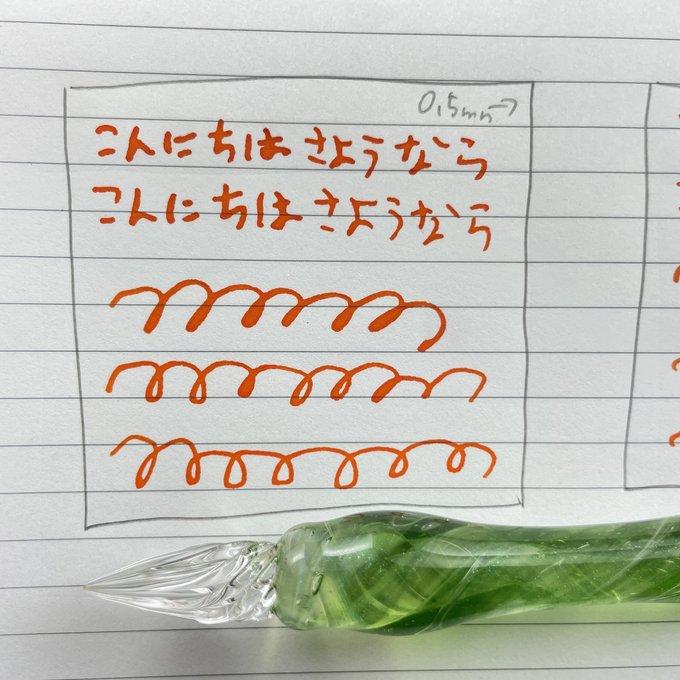 0.5mm→
こんにちは さようなら
こんにちは さようなら